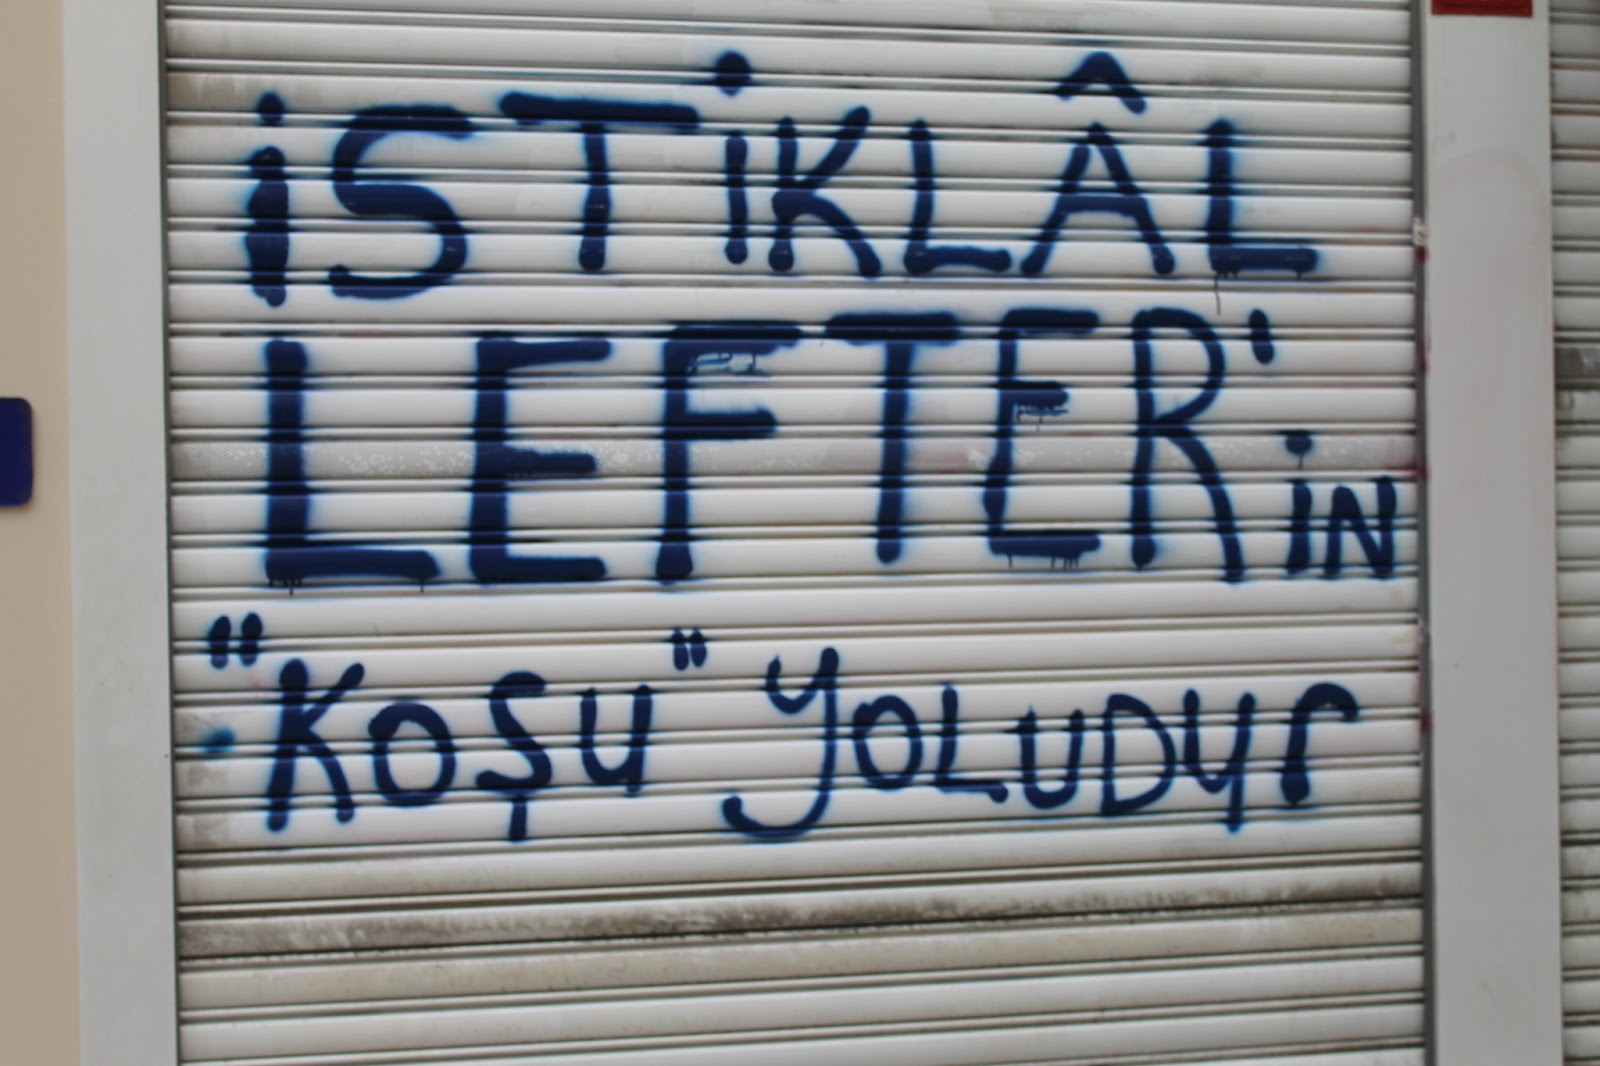 iSTiKLÂL
LEFTER'iN
"KOŞU" YOLUDUr